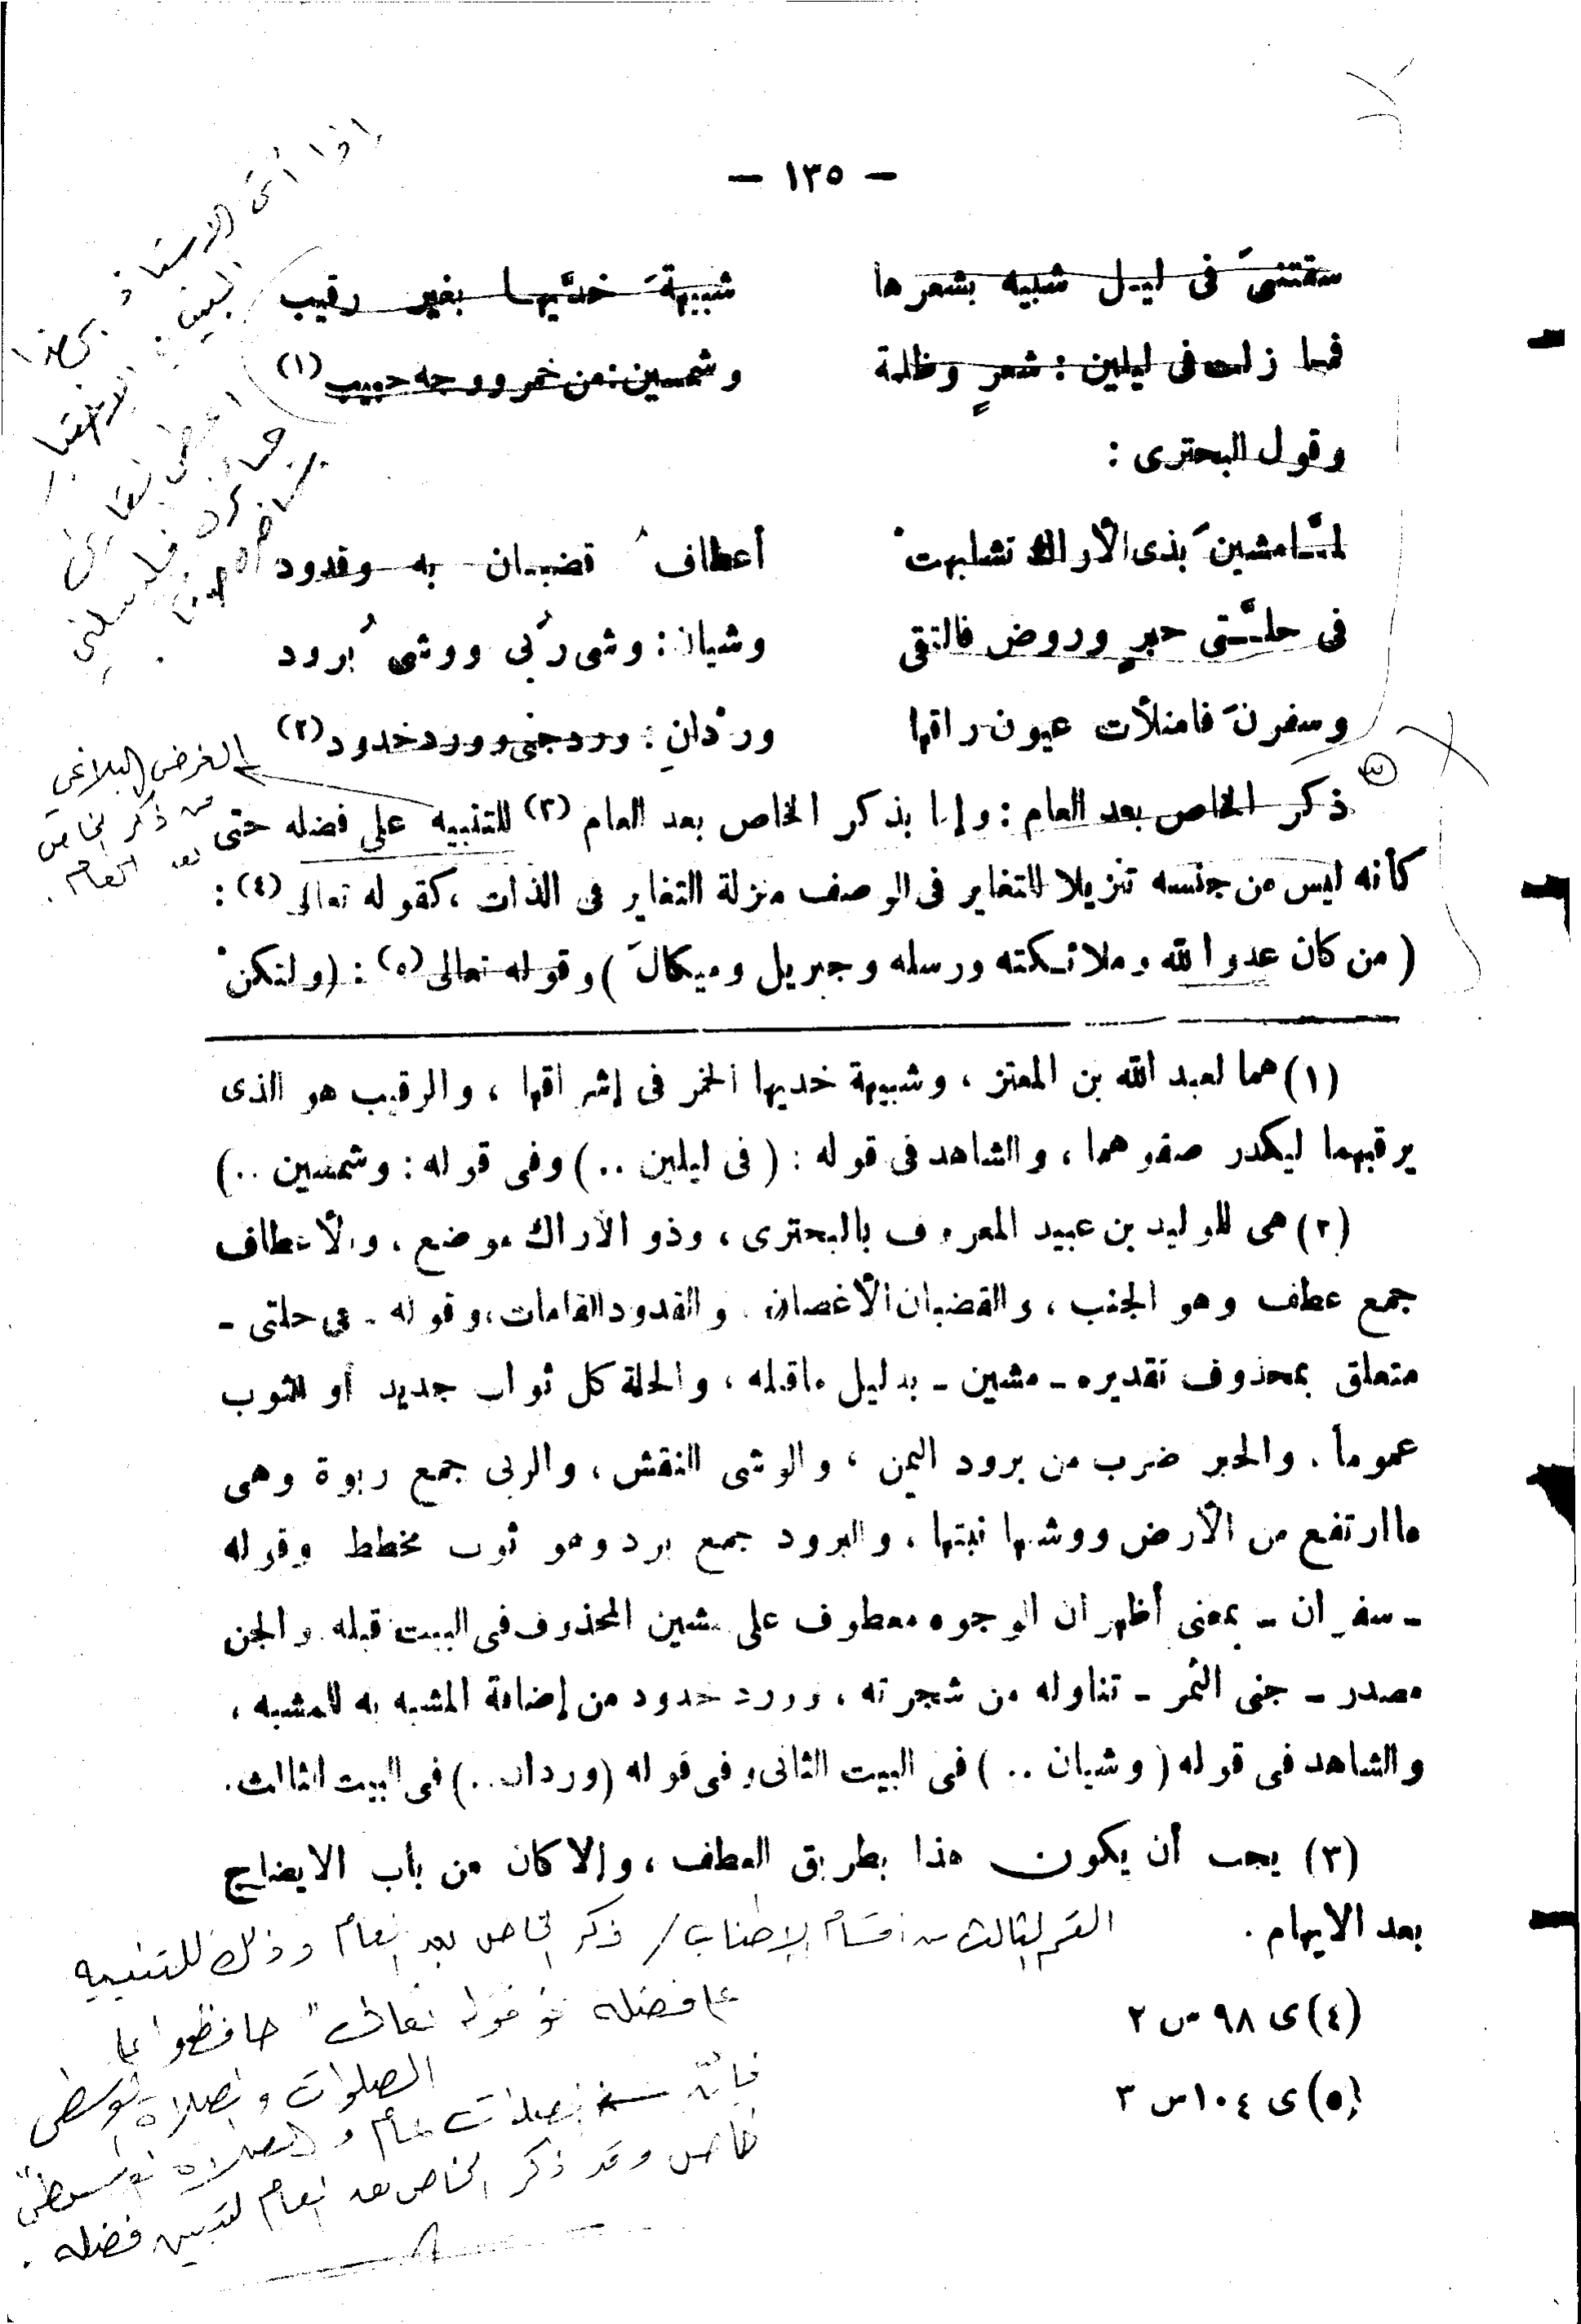 — ١٣٥ —
سقتنى فى ليـل شبيه بشعرها شبيهةَ خدَّيهـا بغير رقيب
فمـا زلت فى ليلين : شعرٍ وظلمة وشمسين : من خمر ووجه حبيب (١)
وقول البحترى :
لمَّـا مشينَ بذى الأراك تشابهتْ أعطافُ قضبـان به وقدود
فى حلَّـتى حبرٍ وروض فالتقى وشيان : وشى رُبى ووشى بُرود
وسفرنَ فامتلأت عيون راقها وردْانِ : ورد جنى وورد خدود (٢)
ذكر الخاص بعد العام : وإما بذكر الخاص بعد العام (٣) للتنبيه على فضله حتى
كأنه ليس من جنسه تنزيلا للتغاير فى الوصف منزلة التغاير فى الذات ، كقوله تعالى (٤) :
( من كان عدوا لله وملائـكته ورسله وجبريل وميكالَ ) وقوله تعالى (٥) : ( ولتكنْ
(١) هما لعبد الله بن المعتز ، وشبيهة خديها الخمر فى إشراقها ، والرقيب هو الذى
يرقبهما ليكدر صفوهما ، والشاهد فى قوله : ( فى ليلين .. ) وفى قوله : وشمسين .. )
(٢) هى للوليد بن عبيد المعروف بالبحترى ، وذو الأراك موضع ، والأعطاف
جمع عطف وهو الجنب ، والقضبان الأغصان . والقدود القامات ، وقوله - فى حلتى -
متعلق بمحذوف تقديره - مشين - بدليل ماقبله ، والحلة كل ثوب جديد أو الثوب
عموماً . والحبر ضرب من برود اليمن ، والوشى النقش ، والربى جمع ربوة وهى
ماارتفع من الأرض ووشيها نبتها ، والبرود جمع برد وهو ثوب مخطط وقوله
- سفرن - بمعنى أظهرن الوجوه معطوف على مشين المحذوف فى البيت قبله والجنى
مصدر - جنى الثمر - تناوله من شجرته ، وورد خدود من إضافة المشبه به للمشبه ،
والشاهد فى قوله ( وشيان .. ) فى البيت الثانى وفى قوله ( وردان .. ) فى البيت الثالث .
(٣) يجب أن يكون هذا بطريق العطف ، وإلا كان من باب الايضاح
بعد الايهام .
(٤) ى ٩٨ س ٢
(٥) ى ١٠٤ س ٣
الغرض البلاغي
من ذكر الخاص
بعد العام .
القسم الثالث من أقسام الإطناب / ذكر الخاص بعد العام وذلك للتنبيه
على فضله نحو قوله تعالى " حافظوا على
الصلوات والصلاة الوسطى
فإن الصلوات عام والصلاة الوسطى
خاص وقد ذكر الخاص بعد العام لتبيين فضله .